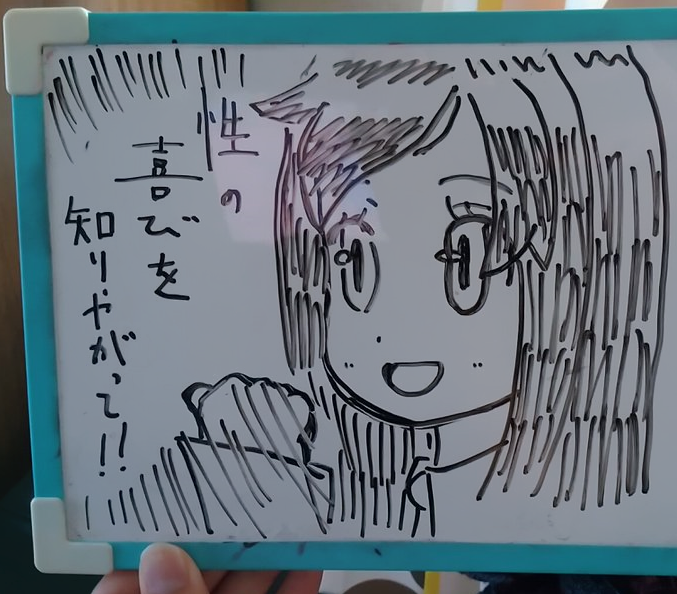 性の
喜びを
知りやがって!!